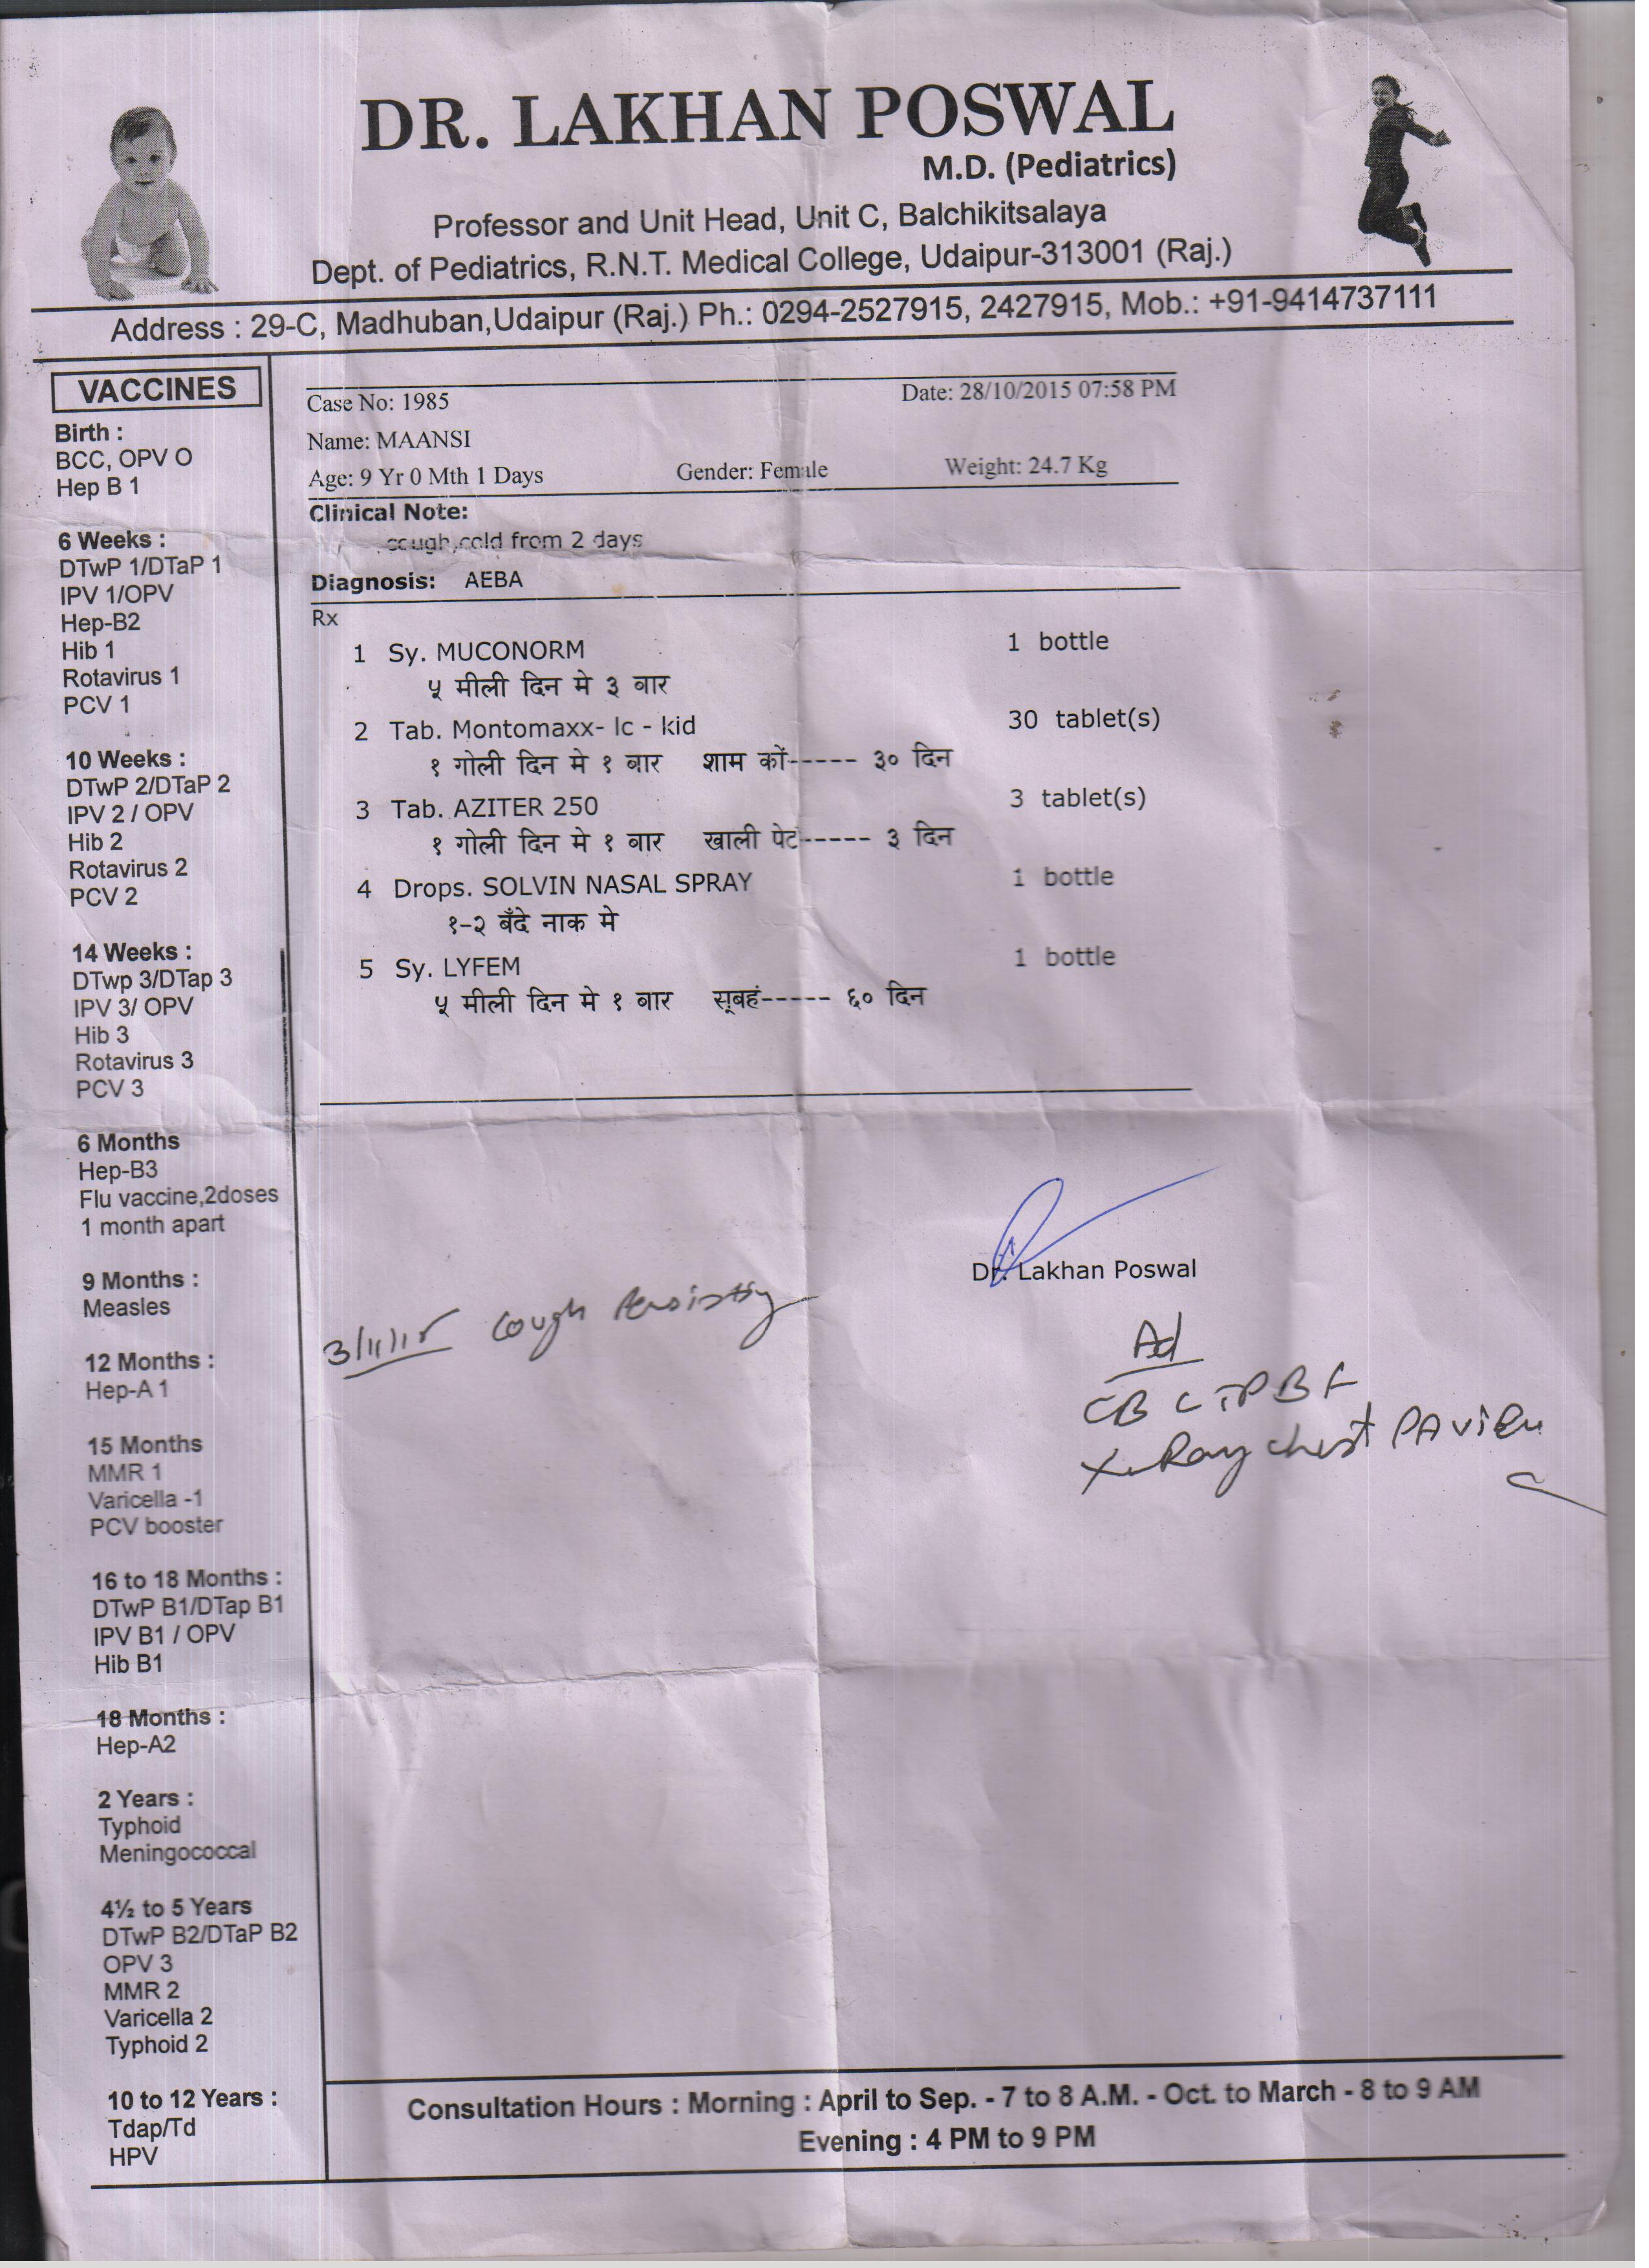 DR. LAKHAN POSWAL
M.D. (Pediatrics)
Professor and Unit Head, Unit C, Balchikitsalaya
Dept. of Pediatrics, R.N.T. Medical College, Udaipur-313001 (Raj.)
Address : 29-C, Madhuban,Udaipur (Raj.) Ph.: 0294-2527915, 2427915, Mob.: +91-9414737111
VACCINES
Birth :
BCC, OPV O
Hep B 1
6 Weeks :
DTwP 1/DTaP 1
IPV 1/OPV
Hep-B2
Hib 1
Rotavirus 1
PCV 1
10 Weeks :
DTwP 2/DTaP 2
IPV 2 / OPV
Hib 2
Rotavirus 2
PCV 2
14 Weeks :
DTwp 3/DTap 3
IPV 3/ OPV
Hib 3
Rotavirus 3
PCV 3
6 Months
Hep-B3
Flu vaccine,2doses
1 month apart
9 Months :
Measles
12 Months :
Hep-A 1
15 Months
MMR 1
Varicella -1
PCV booster
16 to 18 Months :
DTwP B1/DTap B1
IPV B1 / OPV
Hib B1
18 Months :
Hep-A2
2 Years :
Typhoid
Meningococcal
4½ to 5 Years
DTwP B2/DTaP B2
OPV 3
MMR 2
Varicella 2
Typhoid 2
10 to 12 Years :
Tdap/Td
HPV
Case No: 1985 Date: 28/10/2015 07:58 PM
Name: MAANSI
Age: 9 Yr 0 Mth 1 Days Gender: Female Weight: 24.7 Kg
Clinical Note:
cough,cold from 2 days
Diagnosis: AEBA
Rx
1 Sy. MUCONORM 1 bottle
५ मीली दिन मे ३ बार
2 Tab. Montomaxx- lc - kid 30 tablet(s)
१ गोली दिन मे १ बार शाम कों----- ३० दिन
3 Tab. AZITER 250 3 tablet(s)
१ गोली दिन मे १ बार खाली पेट----- ३ दिन
4 Drops. SOLVIN NASAL SPRAY 1 bottle
१-२ बूँदे नाक मे
5 Sy. LYFEM 1 bottle
५ मीली दिन मे १ बार सूबहं----- ६० दिन
Dr. Lakhan Poswal
3/11/15 Cough
Ad
CBC PBF
X-Ray chest PA view
Consultation Hours : Morning : April to Sep. - 7 to 8 A.M. - Oct. to March - 8 to 9 AM
Evening : 4 PM to 9 PM